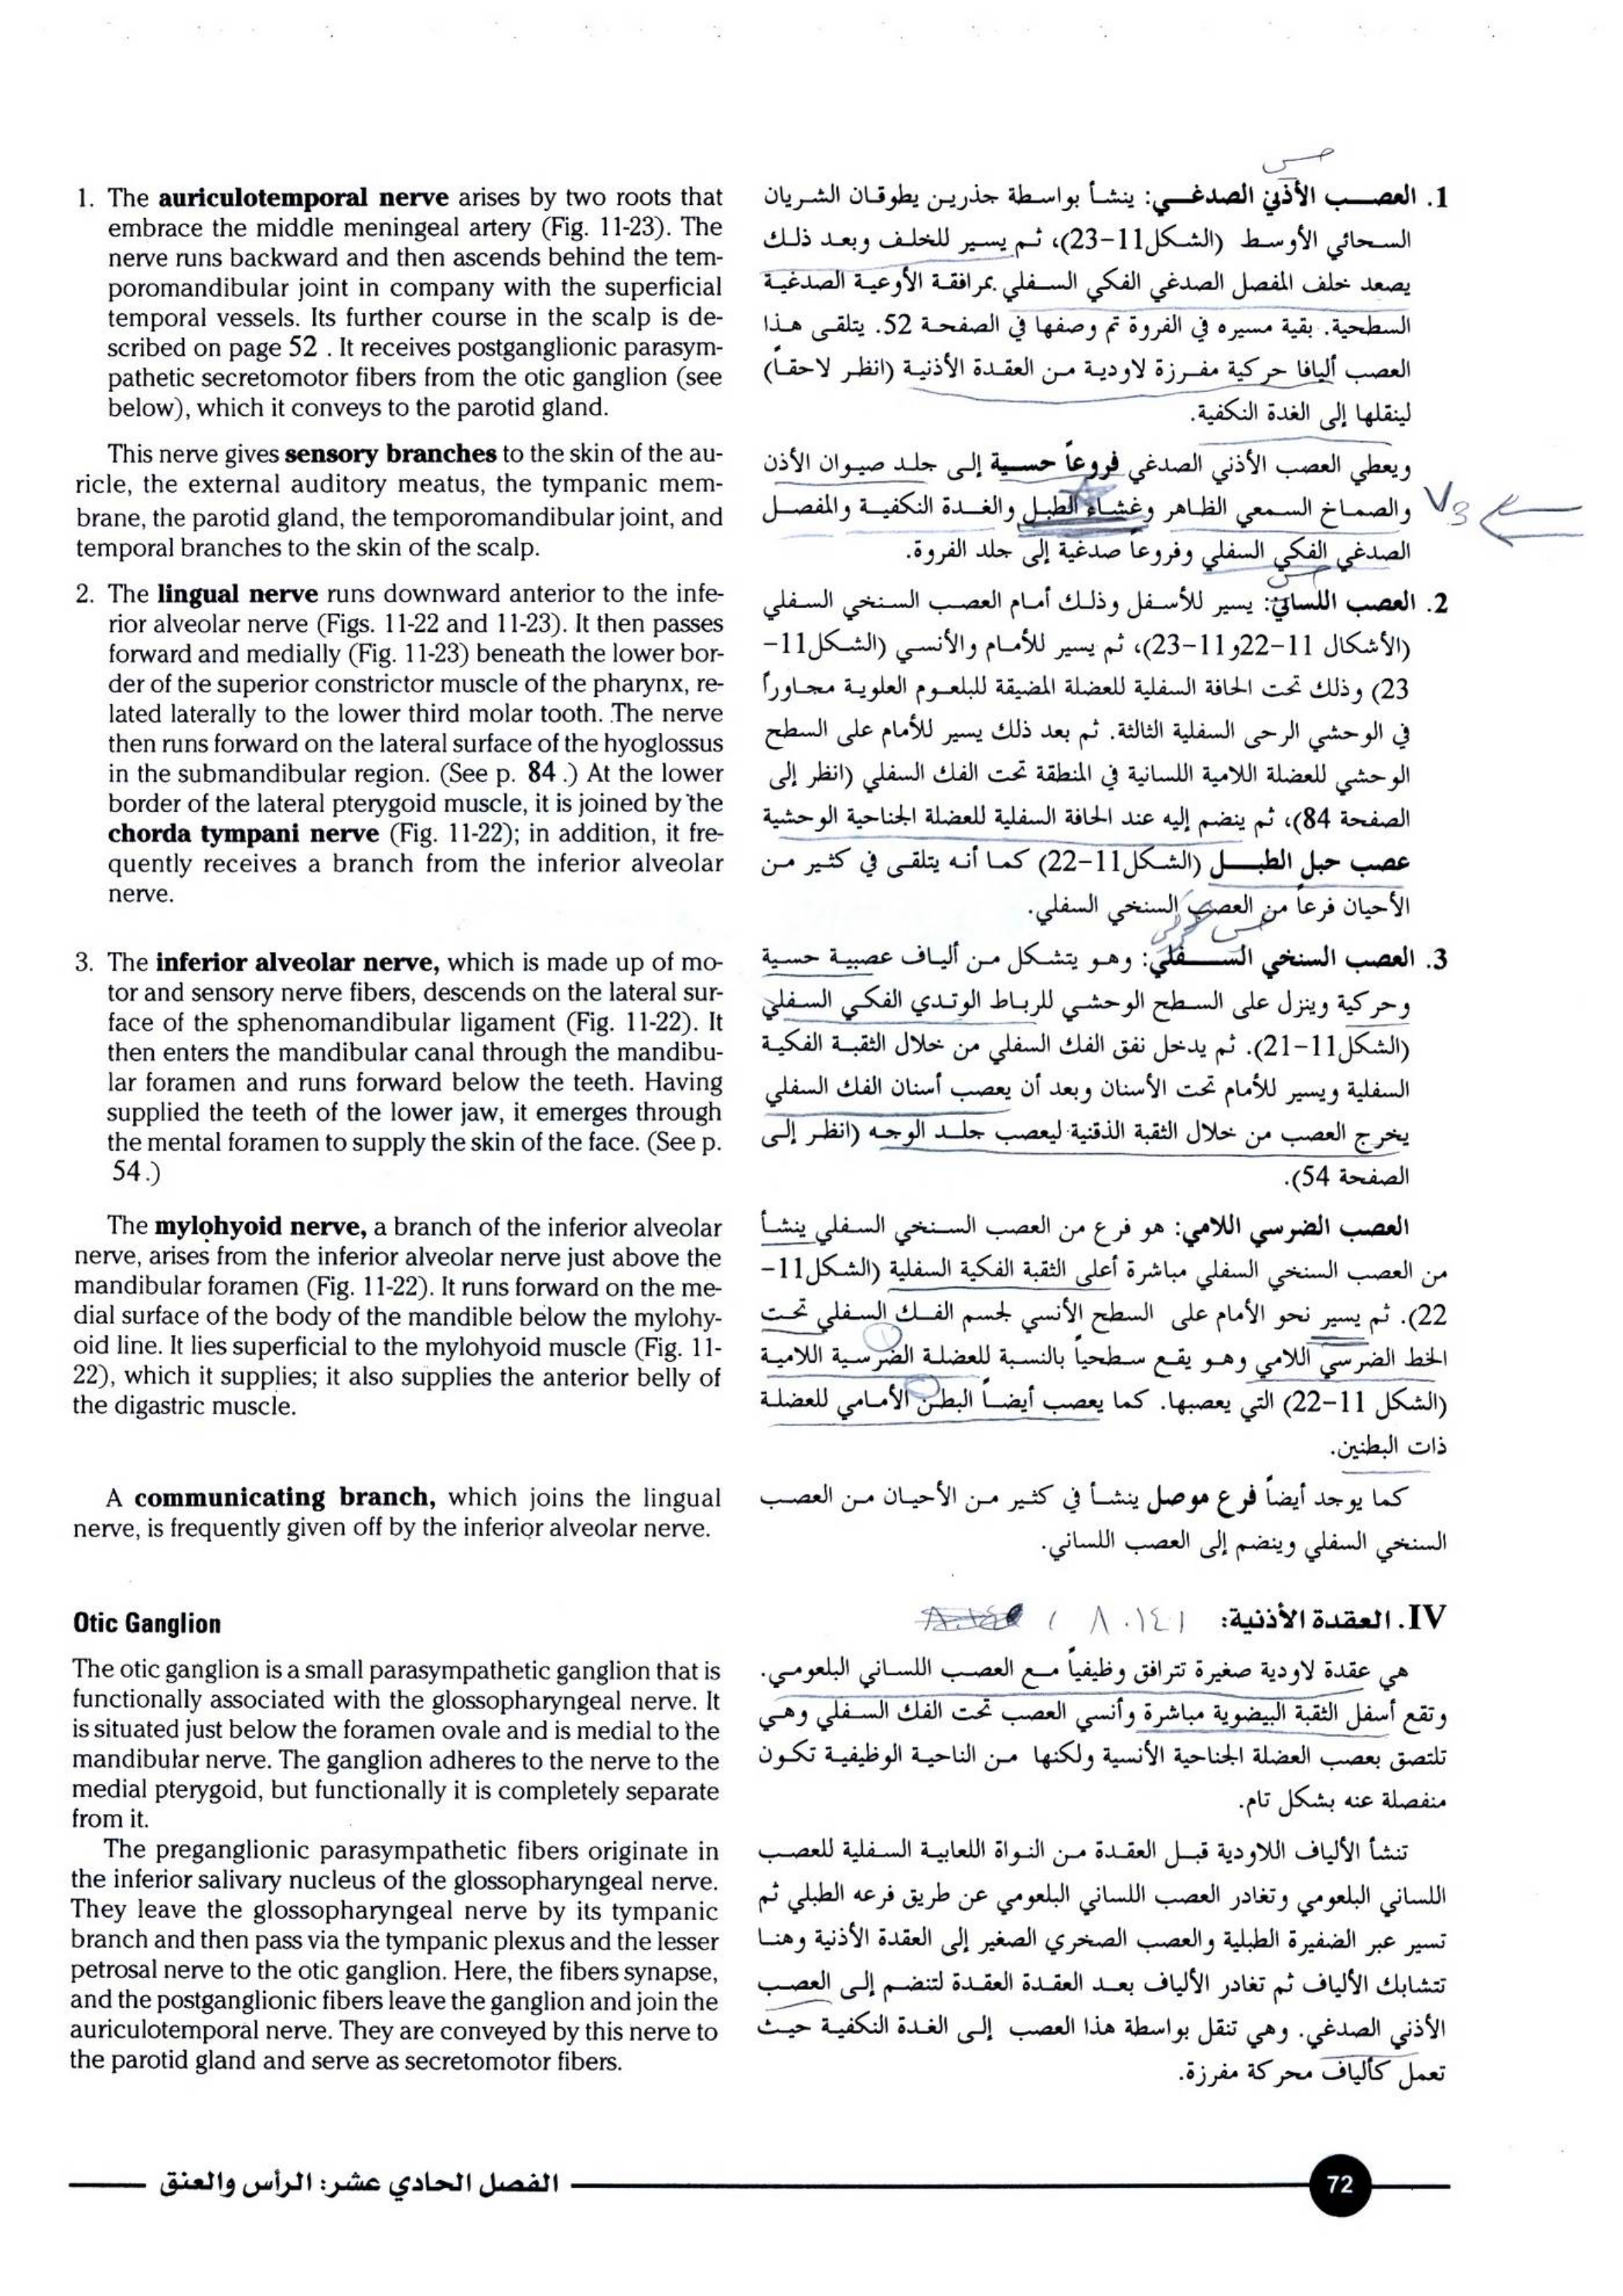 1. The auriculotemporal nerve arises by two roots that
embrace the middle meningeal artery (Fig. 11-23). The
nerve runs backward and then ascends behind the tem-
poromandibular joint in company with the superficial
temporal vessels. Its further course in the scalp is de-
scribed on page 52 . It receives postganglionic parasym-
pathetic secretomotor fibers from the otic ganglion (see
below), which it conveys to the parotid gland.
This nerve gives sensory branches to the skin of the au-
ricle, the external auditory meatus, the tympanic mem-
brane, the parotid gland, the temporomandibular joint, and
temporal branches to the skin of the scalp.
2. The lingual nerve runs downward anterior to the infe-
rior alveolar nerve (Figs. 11-22 and 11-23). It then passes
forward and medially (Fig. 11-23) beneath the lower bor-
der of the superior constrictor muscle of the pharynx, re-
lated laterally to the lower third molar tooth. The nerve
then runs forward on the lateral surface of the hyoglossus
in the submandibular region. (See p. 84 .) At the lower
border of the lateral pterygoid muscle, it is joined by the
chorda tympani nerve (Fig. 11-22); in addition, it fre-
quently receives a branch from the inferior alveolar
nerve.
3. The inferior alveolar nerve, which is made up of mo-
tor and sensory nerve fibers, descends on the lateral sur-
face of the sphenomandibular ligament (Fig. 11-22). It
then enters the mandibular canal through the mandibu-
lar foramen and runs forward below the teeth. Having
supplied the teeth of the lower jaw, it emerges through
the mental foramen to supply the skin of the face. (See p.
54 .)
The mylohyoid nerve, a branch of the inferior alveolar
nerve, arises from the inferior alveolar nerve just above the
mandibular foramen (Fig. 11-22). It runs forward on the me-
dial surface of the body of the mandible below the mylohy-
oid line. It lies superficial to the mylohyoid muscle (Fig. 11-
22), which it supplies; it also supplies the anterior belly of
the digastric muscle.
A communicating branch, which joins the lingual
nerve, is frequently given off by the inferior alveolar nerve.
Otic Ganglion
The otic ganglion is a small parasympathetic ganglion that is
functionally associated with the glossopharyngeal nerve. It
is situated just below the foramen ovale and is medial to the
mandibular nerve. The ganglion adheres to the nerve to the
medial pterygoid, but functionally it is completely separate
from it.
The preganglionic parasympathetic fibers originate in
the inferior salivary nucleus of the glossopharyngeal nerve.
They leave the glossopharyngeal nerve by its tympanic
branch and then pass via the tympanic plexus and the lesser
petrosal nerve to the otic ganglion. Here, the fibers synapse,
and the postganglionic fibers leave the ganglion and join the
auriculotemporal nerve. They are conveyed by this nerve to
the parotid gland and serve as secretomotor fibers.
حس
1. العصب الأذني الصدغي: ينشأ بواسطة جذرين يطوقان الشريان
السحائي الأوسط (الشكل11-23)، ثم يسير للخلف وبعد ذلك
يصعد خلف المفصل الصدغي الفكي السفلي بمرافقة الأوعية الصدغية
السطحية. بقية مسيره في الفروة تم وصفها في الصفحة 52. يتلقى هذا
العصب أليافا حركية مفرزة لاودية من العقدة الأذنية (انظر لاحقاً)
لينقلها إلى الغدة النكفية.
ويعطي العصب الأذني الصدغي فروعاً حسية إلى جلد صيوان الأذن
والصماخ السمعي الظاهر وغشاء الطبل والغدة النكفية والمفصل
V3
الصدغي الفكي السفلي وفروعاً صدغية إلى جلد الفروة.
حس
2. العصب اللساني: يسير للأسفل وذلك أمام العصب السنخي السفلي
(الأشكال 11-22و11-23)، ثم يسير للأمام والأنسي (الشكل11-
23) وذلك تحت الحافة السفلية للعضلة المضيقة للبلعوم العلوية مجاوراً
في الوحشي الرحى السفلية الثالثة. ثم بعد ذلك يسير للأمام على السطح
الوحشي للعضلة اللامية اللسانية في المنطقة تحت الفك السفلي (انظر إلى
الصفحة 84)، ثم ينضم إليه عند الحافة السفلية للعضلة الجناحية الوحشية
عصب حبل الطبل (الشكل11-22) كما أنه يتلقى في كثير من
الأحيان فرعاً من العصب السنخي السفلي.
حس حركي
3. العصب السنخي السفلي: وهو يتشكل من ألياف عصبية حسية
وحركية وينزل على السطح الوحشي للرباط الوتدي الفكي السفلي
(الشكل11-21). ثم يدخل نفق الفك السفلي من خلال الثقبة الفكية
السفلية ويسير للأمام تحت الأسنان وبعد أن يعصب أسنان الفك السفلي
يخرج العصب من خلال الثقبة الذقنية ليعصب جلد الوجه (انظر إلى
الصفحة 54).
العصب الضرسي اللامي: هو فرع من العصب السنخي السفلي ينشأ
من العصب السنخي السفلي مباشرة أعلى الثقبة الفكية السفلية (الشكل11-
22). ثم يسير نحو الأمام على السطح الأنسي لجسم الفك السفلي تحت
الخط الضرسي اللامي وهو يقع سطحياً بالنسبة للعضلة الضرسية اللامية
(الشكل 11-22) التي يعصبها. كما يعصب أيضاً البطن الأمامي للعضلة
ذات البطنين.
كما يوجد أيضاً فرع موصل ينشأ في كثير من الأحيان من العصب
السنخي السفلي وينضم إلى العصب اللساني.
IV. العقدة الأذنية:
هي عقدة لاودية صغيرة تترافق وظيفياً مع العصب اللساني البلعومي.
وتقع أسفل الثقبة البيضوية مباشرة وأنسي العصب تحت الفك السفلي وهي
تلتصق بعصب العضلة الجناحية الأنسية ولكنها من الناحية الوظيفية تكون
منفصلة عنه بشكل تام.
تنشأ الألياف اللاودية قبل العقدة من النواة اللعابية السفلية للعصب
اللساني البلعومي وتغادر العصب اللساني البلعومي عن طريق فرعه الطبلي ثم
تسير عبر الضفيرة الطبلية والعصب الصخري الصغير إلى العقدة الأذنية وهنا
تتشابك الألياف ثم تغادر الألياف بعد العقدة العقدة لتنضم إلى العصب
الأذني الصدغي. وهي تنقل بواسطة هذا العصب إلى الغدة النكفية حيث
تعمل كألياف محركة مفرزة.
الفصل الحادي عشر: الرأس والعنق
72